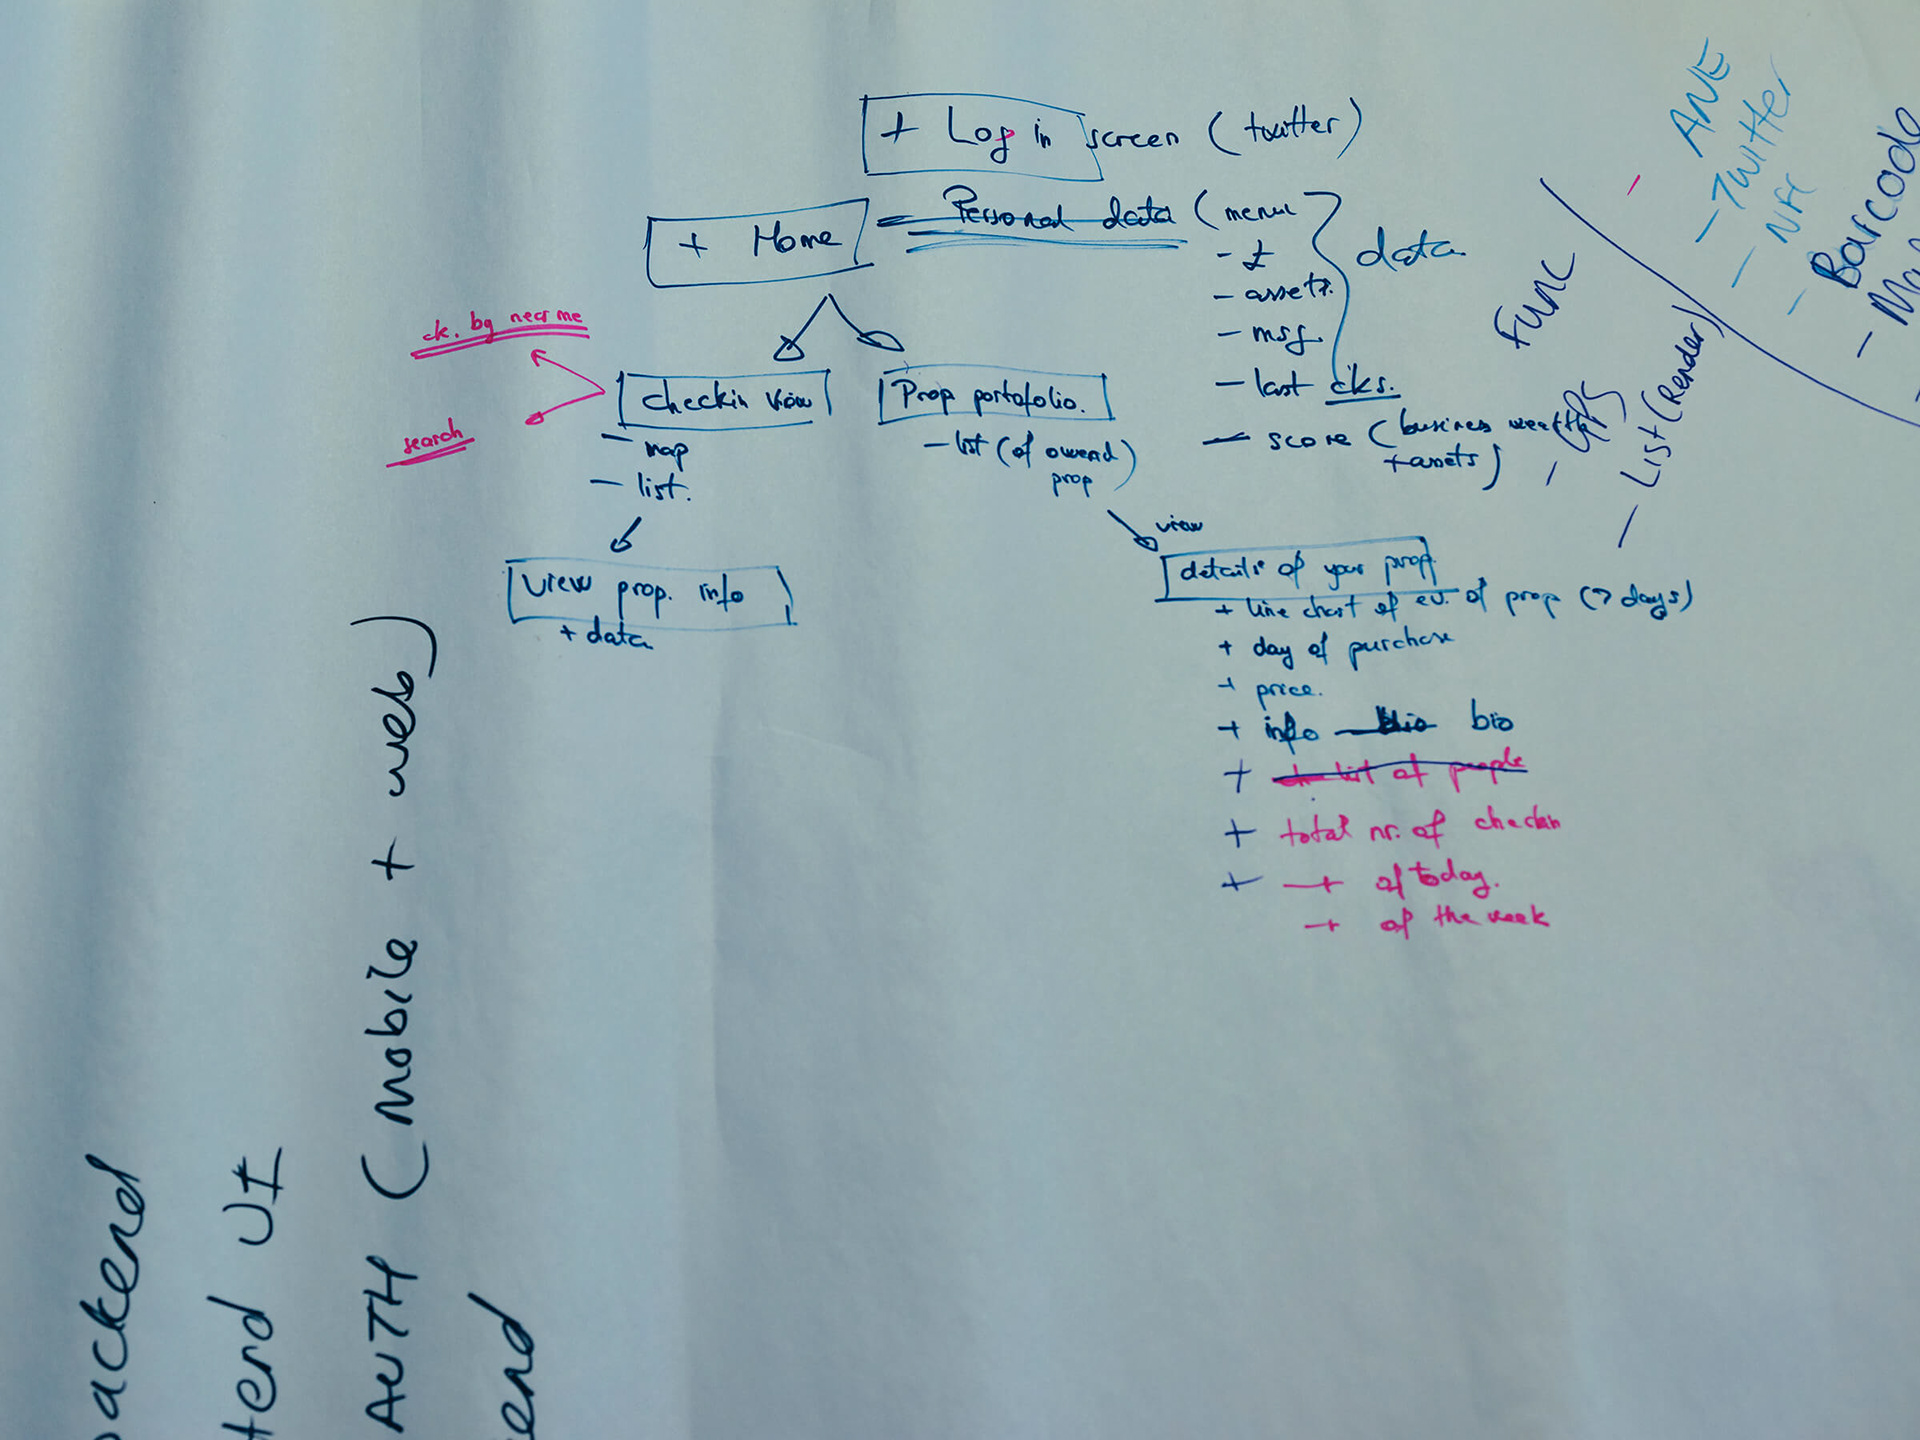 + Log in screen (twitter)
+ Home
Personal data (menu
- £
- assets.
- msg.
- last cks.
- score (business
+ assets)
data
ck. bg near me
search
Checkin view
- map
- list.
Prop portofolio.
- list (of owend)
prop
view
View prop. info
+ data
details of your prop
+ line chart of ev. of prop (7 days)
+ day of purchase
+ price.
+ info bio
+ list of people
+ total nr. of checkin
+ of today.
of the week
FUNC
- GPS
- List (Render)
ANE
- Twitter
- NFC
- Barcode
AUTH (mobile + web)
UI